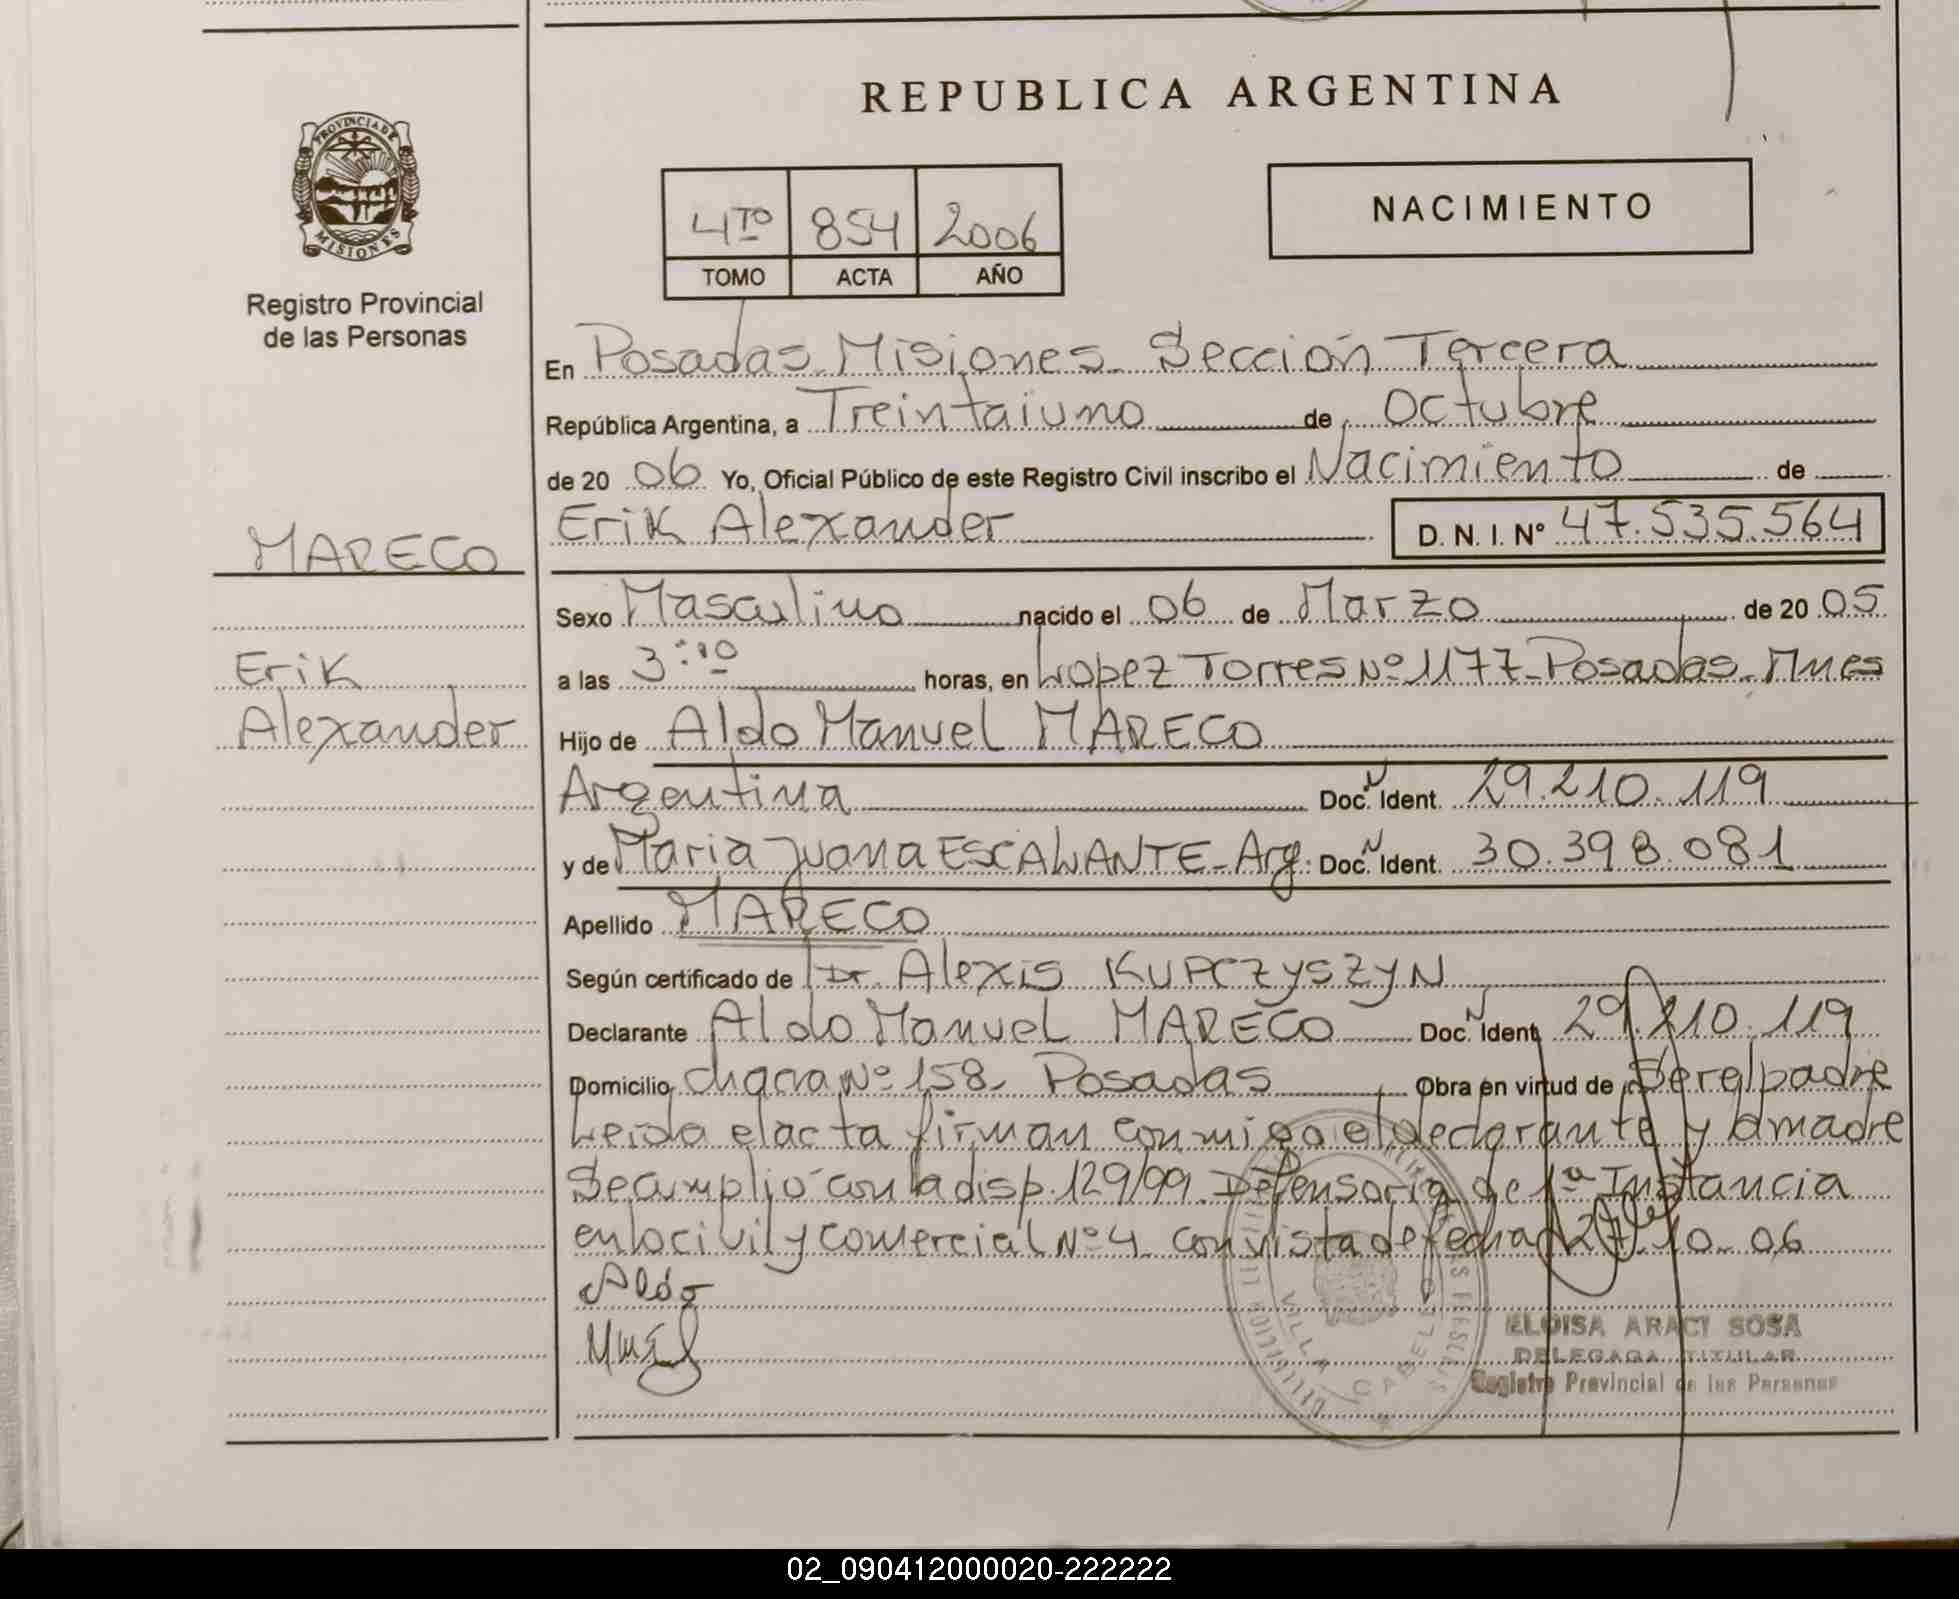 REPUBLICA ARGENTINA
PROVINCIA DE
MISIONES
Registro Provincial
de las Personas
4TO 854 2006
TOMO ACTA AÑO
NACIMIENTO
En Posadas Misiones. Sección Tercera
República Argentina, a Treintaiuno de Octubre
de 20 06 Yo, Oficial Público de este Registro Civil inscribo el Nacimiento de
MARECO
Erik Alexander D. N. I. Nº 47.535.564
Sexo Masculino nacido el 06 de Marzo de 20 05
Erik
a las 3:10 horas, en Lopez Torres Nº 1177-Posadas-Mnes
Alexander
Hijo de Aldo Manuel MARECO
Argentina Doc. Ident. 29.210.119
y de Maria Juana ESCALANTE-Arg. Doc. Ident. 30.398.081
Apellido MARECO
Según certificado de Dr. Alexis KUPCZYSZYN
Declarante Aldo Manuel MARECO Doc. Ident. 29.210.119
Domicilio chacra Nº 158- Posadas Obra en virtud de Ser el padre
Leida el acta firman conmigo el declarante y la madre
Se cumplió con la disp. 129/99. Defensoria de 1ª Instancia
en lo civil y comercial Nº 4 con vista de fecha 27-10-06
Aldo
VILLA CABELLO
ELOISA ARACI SOSA
DELEGADA TITULAR
Registro Provincial de las Personas
02_090412000020-222222